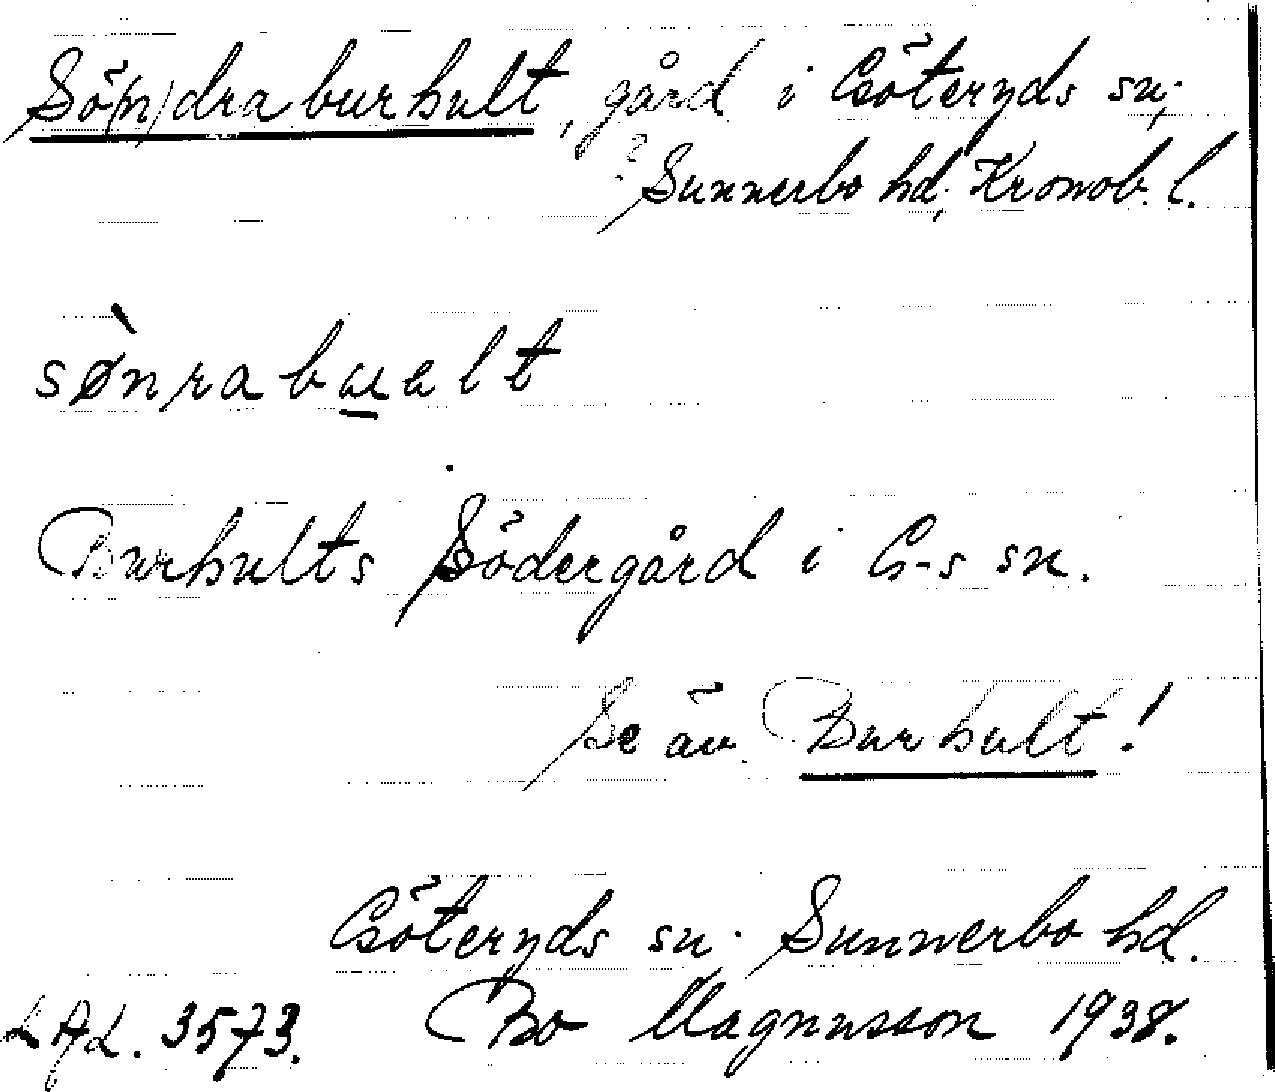 Sö(n)dra burhult, gård i Göteryds sn;
Sunnerbo hd, Kronob. l.
sø̀nrabu̲alt
Burhults Södergård i G-s sn.
Se äv. Burhult!
Göteryds sn. Sunnerbo hd.
LAL. 3573. Bo Magnusson 1938.